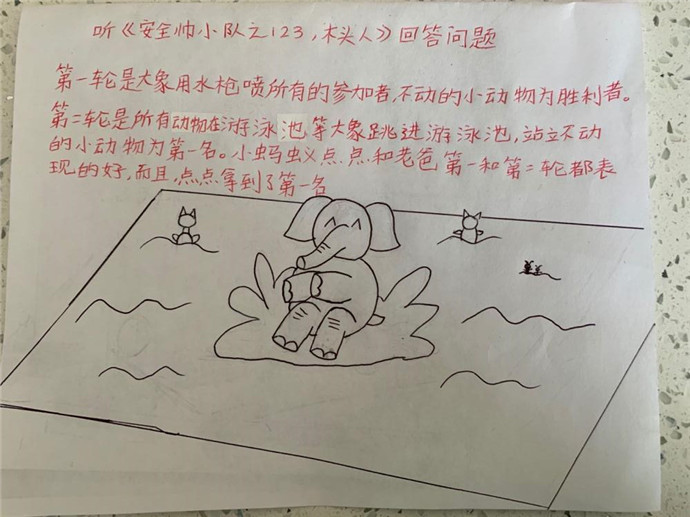 听《安全帅小队之123,木头人》回答问题
第一轮是大象用水枪喷所有的参加者,不动的小动物为胜利者。
第二轮是所有动物在游泳池等大象跳进游泳池,站立不动
的小动物为第一名。小蚂蚁点点和老爸第一和第二轮都表
现的好,而且,点点拿到了第一名